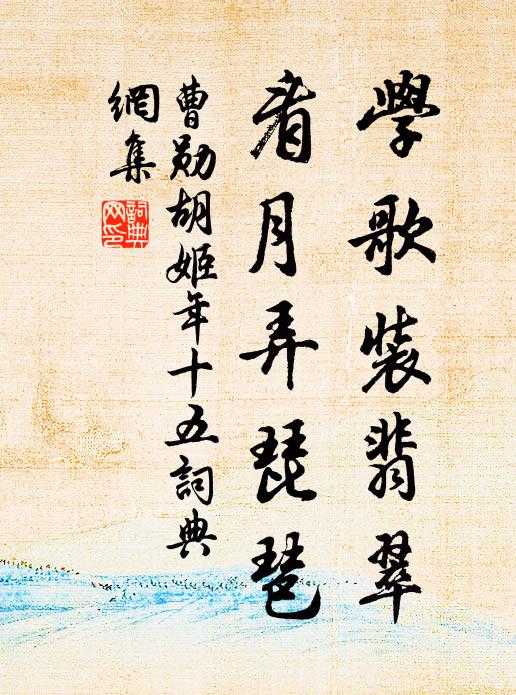 學歌裝翡翠
看月弄琵琶
曹勛胡姬年十五詞典
網集
詞典
网印